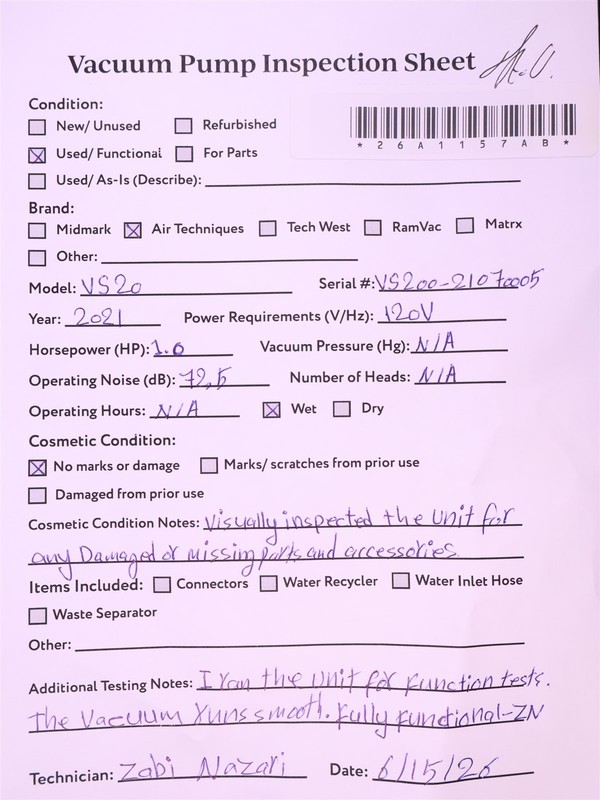 Vacuum Pump Inspection Sheet
Condition:
New/ Unused Refurbished
* 2 6 A 1 1 5 7 A B *
Used/ Functional For Parts
Used/ As-Is (Describe):
Brand:
Midmark Air Techniques Tech West RamVac Matrx
Other:
Model: VS20 Serial #: VS200-21070005
Year: 2021 Power Requirements (V/Hz): 120V
Horsepower (HP): 1.0 Vacuum Pressure (Hg): N/A
Operating Noise (dB): 72,5 Number of Heads: N/A
Operating Hours: N/A Wet Dry
Cosmetic Condition:
No marks or damage Marks/ scratches from prior use
Damaged from prior use
Cosmetic Condition Notes: Visually inspected the unit for
any Damaged or missing parts and accessories
Items Included: Connectors Water Recycler Water Inlet Hose
Waste Separator
Other:
Additional Testing Notes: I ran the unit for function tests.
The Vacuum runs smooth. Fully functional-ZN
Technician: Zabi Nazari Date: 6/15/26